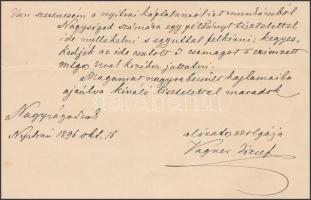 Van szerencsém a nyitrai káptalanról írt munkámból
Nagyságod számára egy példányt tisztelettel
ide mellékelni s egyuttal felkérni: kegyes-
kedjék az ide csatolt 3 csomagot a czimzett
urak kezéhez juttatni.
Magamat nagyrabecsült hajlamaiba
ajánlva kiváló tisztelettel maradok
Nagyságodnak
Nyitrán 1896 okt. 16
alázatos szolgája
Vagner József